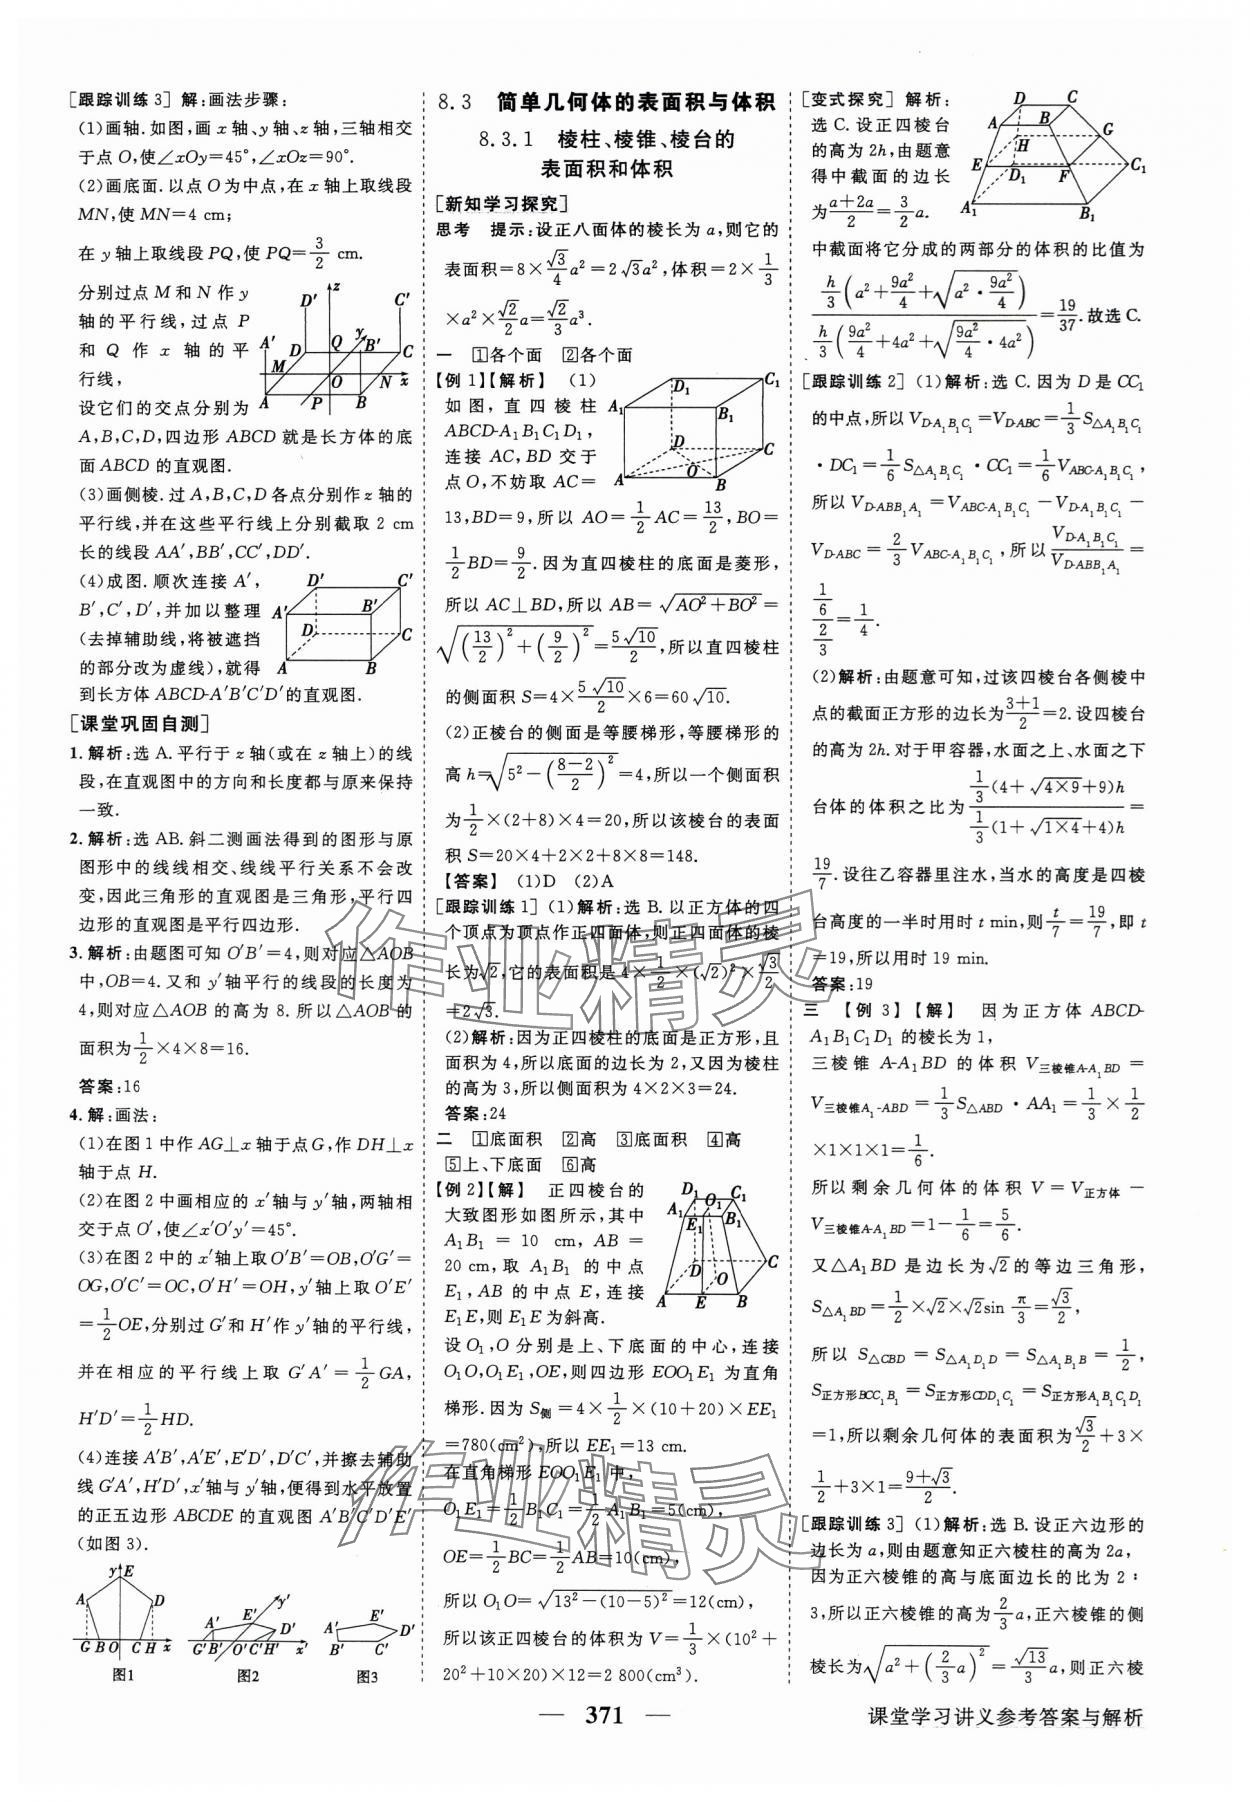 [跟踪训练3] 解:画法步骤:
(1)画轴.如图,画x轴、y轴、z轴,三轴相交
于点O,使∠xOy=45°,∠xOz=90°.
(2)画底面.以点O为中点,在x轴上取线段
MN,使MN=4 cm;
在y轴上取线段PQ,使PQ=3/2 cm.
分别过点M和N作y
轴的平行线,过点P
和Q作x轴的平
行线,
设它们的交点分别为
A,B,C,D,四边形ABCD就是长方体的底
面ABCD的直观图.
(3)画侧棱.过A,B,C,D各点分别作z轴的
平行线,并在这些平行线上分别截取2 cm
长的线段AA′,BB′,CC′,DD′.
(4)成图.顺次连接A′,
B′,C′,D′,并加以整理
(去掉辅助线,将被遮挡
的部分改为虚线),就得
到长方体ABCD-A′B′C′D′的直观图.
[课堂巩固自测]
1.解析:选A.平行于z轴(或在z轴上)的线
段,在直观图中的方向和长度都与原来保持
一致.
2.解析:选AB.斜二测画法得到的图形与原
图形中的线线相交、线线平行关系不会改
变,因此三角形的直观图是三角形,平行四
边形的直观图是平行四边形.
3.解析:由题图可知O′B′=4,则对应△AOB
中,OB=4.又和y′轴平行的线段的长度为
4,则对应△AOB的高为8.所以△AOB的
面积为1/2×4×8=16.
答案:16
4.解:画法:
(1)在图1中作AG⊥x轴于点G,作DH⊥x
轴于点H.
(2)在图2中画相应的x′轴与y′轴,两轴相
交于点O′,使∠x′O′y′=45°.
(3)在图2中的x′轴上取O′B′=OB,O′G′=
OG,O′C′=OC,O′H′=OH,y′轴上取O′E′
=1/2OE,分别过G′和H′作y′轴的平行线,
并在相应的平行线上取G′A′=1/2GA,
H′D′=1/2HD.
(4)连接A′B′,A′E′,E′D′,D′C′,并擦去辅助
线G′A′,H′D′,x′轴与y′轴,便得到水平放置
的正五边形ABCDE的直观图A′B′C′D′E′
(如图3).
图1 图2 图3
8.3 简单几何体的表面积与体积
8.3.1 棱柱、棱锥、棱台的
表面积和体积
[新知学习探究]
思考 提示:设正八面体的棱长为a,则它的
表面积=8×√3/4a²=2√3a²,体积=2×1/3
×a²×√2/2a=√2/3a³.
一 ①各个面 ②各个面
【例1】【解析】 (1)
如图,直四棱柱
ABCD-A₁B₁C₁D₁,
连接AC,BD交于
点O,不妨取AC=
13,BD=9,所以AO=1/2AC=13/2,BO=
1/2BD=9/2.因为直四棱柱的底面是菱形,
所以AC⊥BD,所以AB=√(AO²+BO²)=
√((13/2)²+(9/2)²)=5√10/2,所以直四棱柱
的侧面积S=4×5√10/2×6=60√10.
(2)正棱台的侧面是等腰梯形,等腰梯形的
高h=√(5²-((8-2)/2)²)=4,所以一个侧面积
为1/2×(2+8)×4=20,所以该棱台的表面
积S=20×4+2×2+8×8=148.
【答案】 (1)D (2)A
[跟踪训练1] (1)解析:选B.以正方体的四
个顶点为顶点作正四面体,则正四面体的棱
长为√2,它的表面积是4×1/2×(√2)²×√3/2
=2√3.
(2)解析:因为正四棱柱的底面是正方形,且
面积为4,所以底面的边长为2,又因为棱柱
的高为3,所以侧面积为4×2×3=24.
答案:24
二 ①底面积 ②高 ③底面积 ④高
⑤上、下底面 ⑥高
【例2】【解】 正四棱台的
大致图形如图所示,其中
A₁B₁=10 cm,AB=
20 cm,取A₁B₁的中点
E₁,AB的中点E,连接
E₁E,则E₁E为斜高.
设O₁,O分别是上、下底面的中心,连接
O₁O,O₁E₁,OE,则四边形EOO₁E₁为直角
梯形.因为S侧=4×1/2×(10+20)×EE₁
=780(cm²),所以EE₁=13 cm.
在直角梯形EOO₁E₁中,
O₁E₁=1/2B₁C₁=1/2A₁B₁=5(cm),
OE=1/2BC=1/2AB=10(cm),
所以O₁O=√(13²-(10-5)²)=12(cm),
所以该正四棱台的体积为V=1/3×(10²+
20²+10×20)×12=2 800(cm³).
[变式探究] 解析:
选C.设正四棱台
的高为2h,由题意
得中截面的边长
为(a+2a)/2=3/2a.
中截面将它分成的两部分的体积的比值为
h/3(a²+9a²/4+√(a²·9a²/4))/h/3(9a²/4+4a²+√(9a²/4·4a²))=19/37.故选C.
[跟踪训练2] (1)解析:选C.因为D是CC₁
的中点,所以V_D-A₁B₁C₁=V_D-ABC=1/3S△A₁B₁C₁
·DC₁=1/6S△A₁B₁C₁·CC₁=1/6V_ABC-A₁B₁C₁,
所以V_D-ABB₁A₁=V_ABC-A₁B₁C₁-V_D-A₁B₁C₁-
V_D-ABC=2/3V_ABC-A₁B₁C₁,所以V_D-A₁B₁C₁/V_D-ABB₁A₁=
(1/6)/(2/3)=1/4.
(2)解析:由题意可知,过该四棱台各侧棱中
点的截面正方形的边长为(3+1)/2=2.设四棱台
的高为2h.对于甲容器,水面之上、水面之下
台体的体积之比为1/3(4+√(4×9)+9)h/1/3(1+√(1×4)+4)h=
19/7.设往乙容器里注水,当水的高度是四棱
台高度的一半时用时t min,则t/7=19/7,即t
=19,所以用时19 min.
答案:19
三 【例3】【解】 因为正方体ABCD-
A₁B₁C₁D₁的棱长为1,
三棱锥A-A₁BD的体积V三棱锥A-A₁BD=
V三棱锥A₁-ABD=1/3S△ABD·AA₁=1/3×1/2
×1×1×1=1/6.
所以剩余几何体的体积V=V正方体-
V三棱锥A-A₁BD=1-1/6=5/6.
又△A₁BD是边长为√2的等边三角形,
S△A₁BD=1/2×√2×√2sin π/3=√3/2,
所以S△CBD=S△A₁D₁D=S△A₁B₁B=1/2,
S正方形BCC₁B₁=S正方形CDD₁C₁=S正方形A₁B₁C₁D₁
=1,所以剩余几何体的表面积为√3/2+3×
1/2+3×1=(9+√3)/2.
[跟踪训练3] (1)解析:选B.设正六边形的
边长为a,则由题意知正六棱柱的高为2a,
因为正六棱锥的高与底面边长的比为2:
3,所以正六棱锥的高为2/3a,正六棱锥的侧
棱长为√(a²+(2/3a)²)=√13/3a,则正六棱
— 371 —
课堂学习讲义参考答案与解析
作业精灵
作业精灵